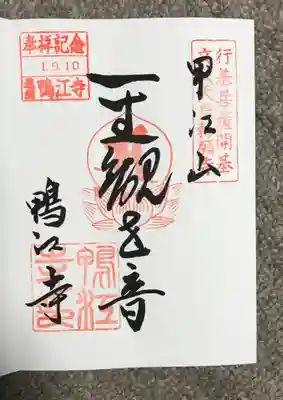 行基菩薩開基
甲江山
一生観世音
奉拝記念
1.9.10
鴨江寺
鴨江寺
鴨江